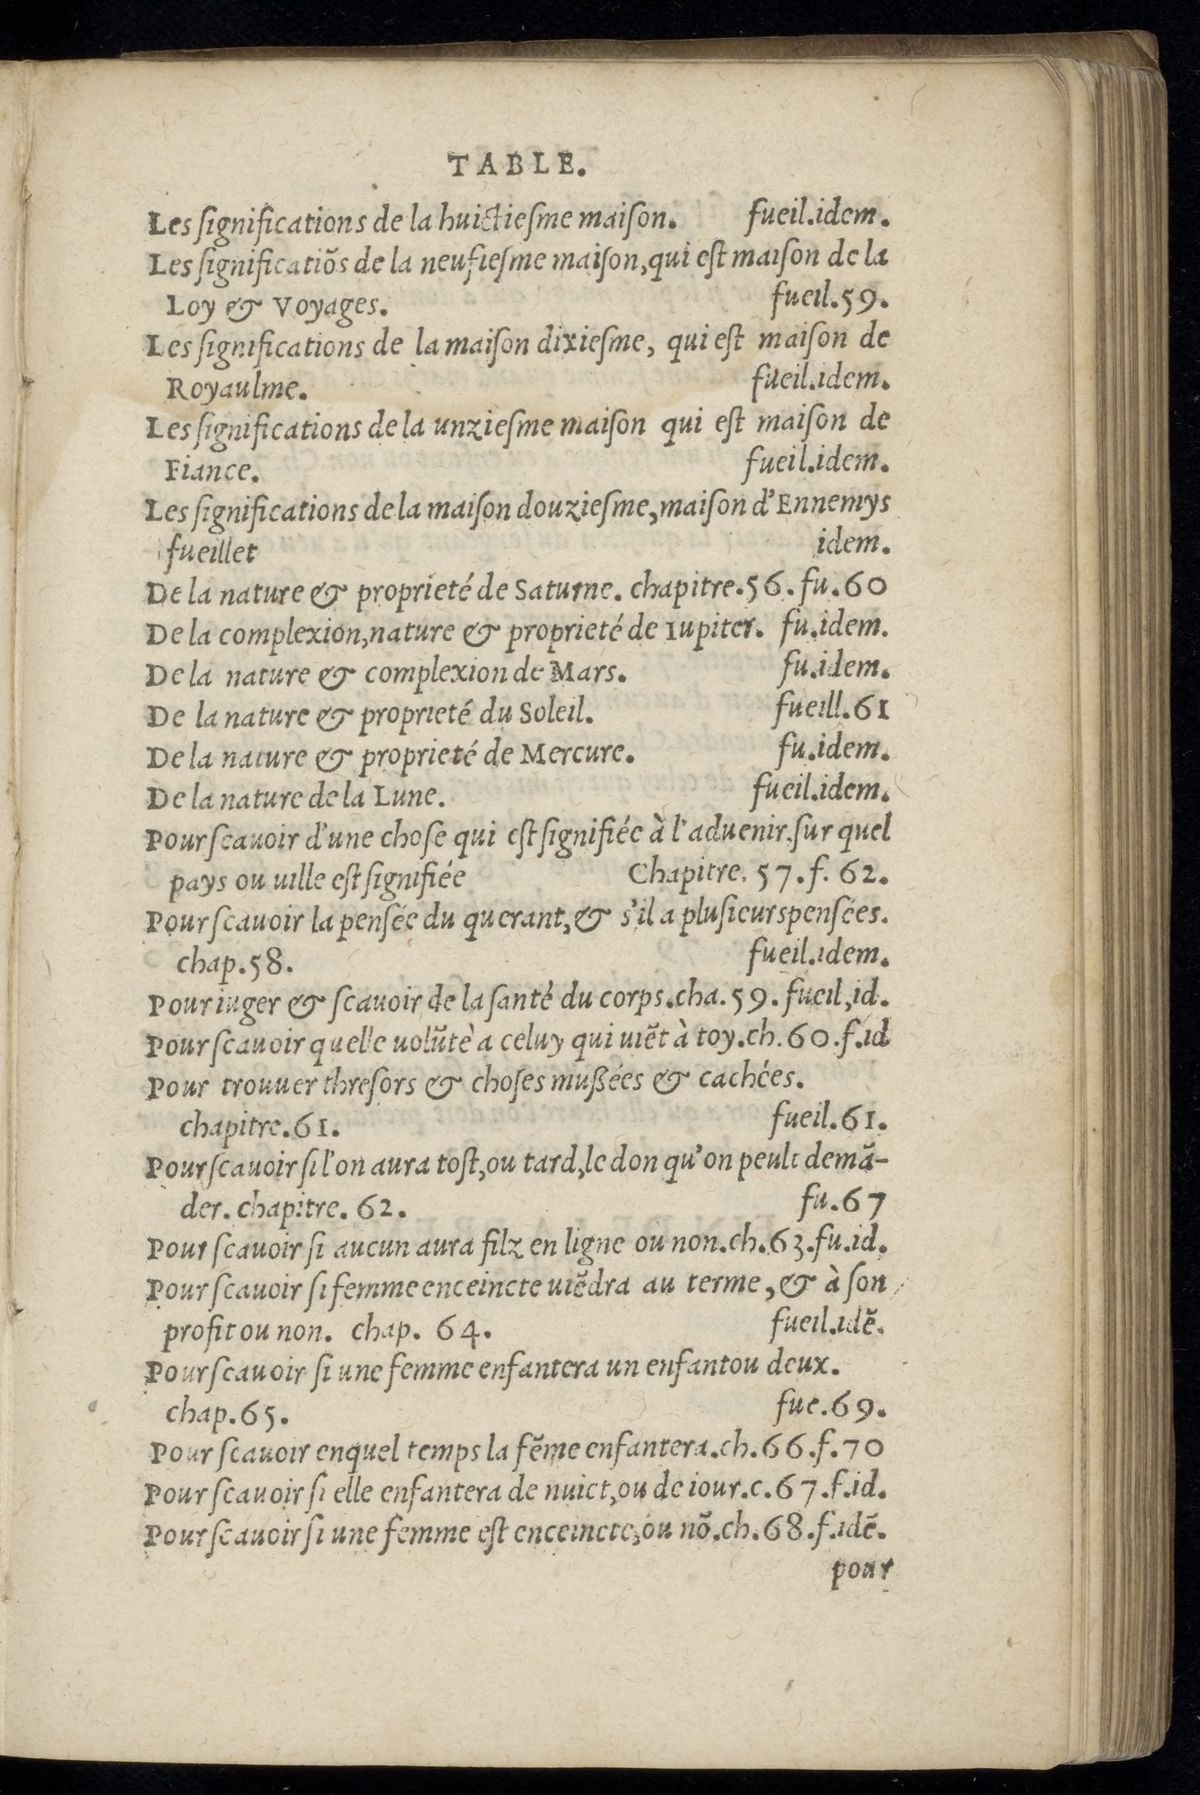 TABLE.
Les ſignifications de la huictieſme maiſon. fueil.idem.
Les ſignificatiõs de la neufieſme maiſon,qui eſt maiſon de la
Loy & Voyages. fueil.59.
Les ſignifications de la maiſon dixieſme, qui eſt maiſon de
Royaulme. fueil.idem.
Les ſignifications de la unzieſme maiſon qui eſt maiſon de
Fiance. fueil.idem.
Les ſignifications de la maiſon douzieſme,maiſon d'Ennemys
fueillet idem.
De la nature & proprieté de Saturne. chapitre.56. fu.60
De la complexion,nature & proprieté de Iupiter. fu.idem.
De la nature & complexion de Mars. fu.idem.
De la nature & proprieté du Soleil. fueill.61
De la nature & proprieté de Mercure. fu.idem.
De la nature de la Lune. fueil.idem.
Pour ſcauoir d'une choſe qui eſt ſignifiée à l'aduenir,ſur quel
pays ou uille eſt ſignifiée Chapitre. 57. f. 62.
Pour ſcauoir la penſée du querant,& s'il a pluſieurs penſées.
chap.58. fueil.idem.
Pour iuger & ſcauoir de la ſanté du corps.cha.59. fueil,id.
Pour ſcauoir quelle uolũtè a celuy qui uiẽt à toy.ch.60.f.id
Pour trouuer threſors & choſes mußées & cachées.
chapitre.61. fueil.61.
Pour ſcauoir ſi l'on aura toſt,ou tard,le don qu'on peult demã-
der. chapitre. 62. fu.67
Pour ſcauoir ſi aucun aura filz en ligne ou non.ch.63.fu.id.
Pour ſcauoir ſi femme enceincte uiẽdra au terme,& à ſon
profit ou non. chap. 64. fueil.idẽ.
Pour ſcauoir ſi une femme enfantera un enfant ou deux.
chap.65. fue.69.
Pour ſcauoir en quel temps la fẽme enfantera.ch.66.f.70
Pour ſcauoir ſi elle enfantera de nuict,ou de iour.c.67.f.id.
Pour ſcauoir ſi une femme eſt enceincte,ou nõ.ch.68.f.idẽ.
pour